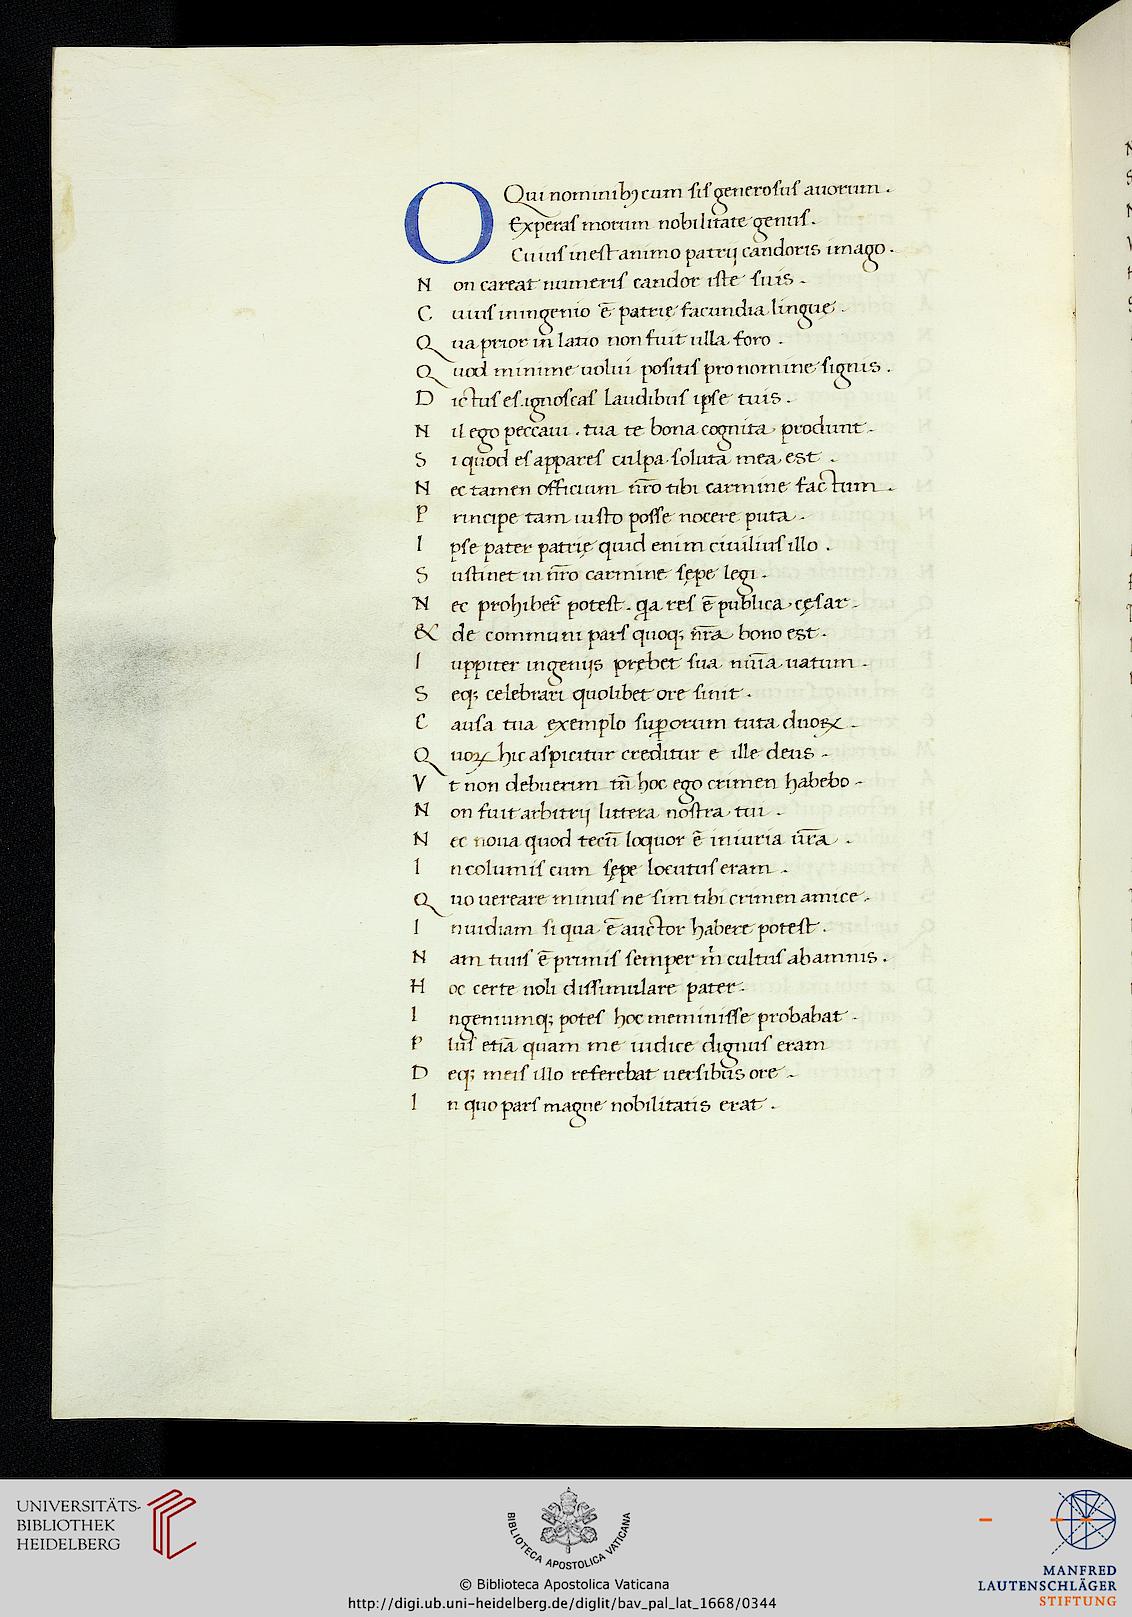 O Qui nominibꝫ cum sis generosus auorum .
Exꝑeras morum nobilitate genus .
Cuius inest animo patrij candoris imago .
Non careat numeris candor iste suis .
Cuius in ingenio ē patrię facundia linguę .
Qua prior in latio non fuit ulla foro .
Quod minime uolui positis pro nomine signis .
Dictus es . ignoscas laudibus ipse tuis .
Nil ego peccaui . tua te bona cognita produnt .
Si quod es appares culpa soluta mea est .
Nec tamen officium nr̄o tibi carmine factum .
Principe tam iusto posse nocere puta .
Ipse pater patrię quid enim ciuilius illo .
Sustinet in nr̄o carmine sępe legi .
Nec prohiber̄ potest . qa res ē publica cęsar .
& de communi pars quoqꝫ nr̄a bono est .
Iuppiter ingenijs prębet sua nūīa uatum .
Seqꝫ celebrari quolibet ore sinit .
Causa tua exemplo suꝑorum tuta duoꝝ .
Quoꝝ hic aspicitur creditur e ille deus .
Vt non debuerim tn̄ hoc ego crimen habebo .
Non fuit arbitrij littera nostra tui .
Nec noua quod tecū loquor ē iniuria ur̄a .
Incolumis cum sępe locutus eram .
Quo uereare minus ne sim tibi crimen amice .
Inuidiam si qua ē auctor habere potest .
Nam tuus ē primis semper m̄ cultus ab annis .
Hoc certe noli dissimulare pater .
Ingeniumqꝫ potes hoc meminisse probabat .
Plus etiā quam me iudice dignus eram
Deqꝫ meis illo referebat uersibus ore .
In quo pars magne nobilitatis erat .
UNIVERSITÄTS-
BIBLIOTHEK
HEIDELBERG
BIBLIOTECA APOSTOLICA VATICANA
MANFRED
LAUTENSCHLÄGER
STIFTUNG
© Biblioteca Apostolica Vaticana
http://digi.ub.uni-heidelberg.de/diglit/bav_pal_lat_1668/0344